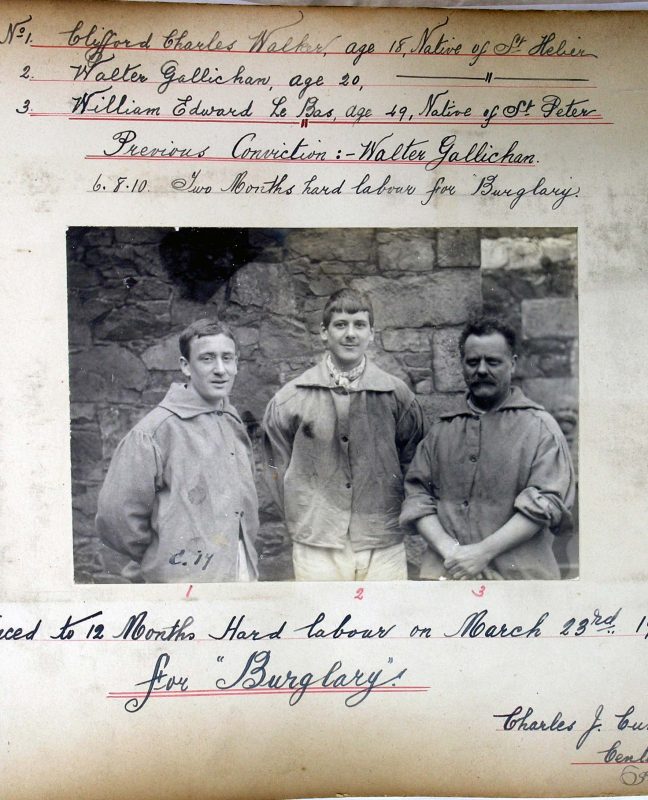 No 1. Clifford Charles Walker, age 18, Native of St. Helier
2. Walter Gallichan, age 20, ——— " ———
3. William Edward Le Bas, age 49, Native of St. Peter
Previous Conviction :- Walter Gallichan.
6.8.10. Two Months hard labour for Burglary.
C. 17
1 2 3
nced to 12 Months Hard labour on March 23rd 19
for "Burglary".
Charles J.